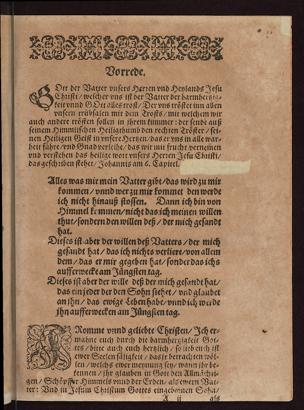 Vorrede.
Gott der Vatter vnsers Herren vnd Heylands Jesu
Christi / welcher vns ist der Vatter der barmhertzig-
keit vnnd Gott alles trosts / Der vns tröstet inn allen
vnsern trübsalen mit dem Trosts / mit welchem wir
auch andere trösten sollen in jhrem kummer: der sende auß
seinem Himmlischen Heiligthumb den rechten Tröster / sei-
nen Heiligen Geist in vnsere Hertzen / das er vns in alle war-
heit führe / vnd Gnad verleihe / das wir mit frucht vernemen
vnd verstehen das heilige wort vnsers Herren Jesu Christi /
das geschriben stehet / Johannis am 6. Capitel.
Alles was mir mein Vatter gibt / das wird zu mir
kommen / vnnd wer zu mir kommet den werde
ich nicht hinauß stossen. Dann ich bin von
Himmel kommen / nicht das ich meinen willen
thut / sondern den willen deß / der mich gesandt
hat.
Dieses ist aber der willen deß Vatters / der mich
gesandt hat / das ich nichts verliere / von allem
dem / das er mir gegeben hat / sonder das ichs
aufferweckt am Jüngsten tag.
Dieses ist aber der wille deß der mich gesandt hat /
das ein jeder der den Sohn siehet / vnd glaubet
an jhn / das ewige Leben habe / vnnd ich werde
jhn aufferwecken am Jüngsten tag.
Fromme vnnd geliebte Christen / Ich er-
mahne euch durch die barmhertzigkeit Got-
tes / bitte auch euch hertzlich / so lieb euch ist
ewer Seelen säligkeit / das jr betrachten wöl-
len / welchs ewer meynung sey / wann jhr be-
jhr glauben in Gott den Allmächti-
gen / Schöpffer Himmels vnnd der Erden / als ewern Vat-
ter: Vnd in Jesum Christum Gottes eingebornen Sohn /
A ij als